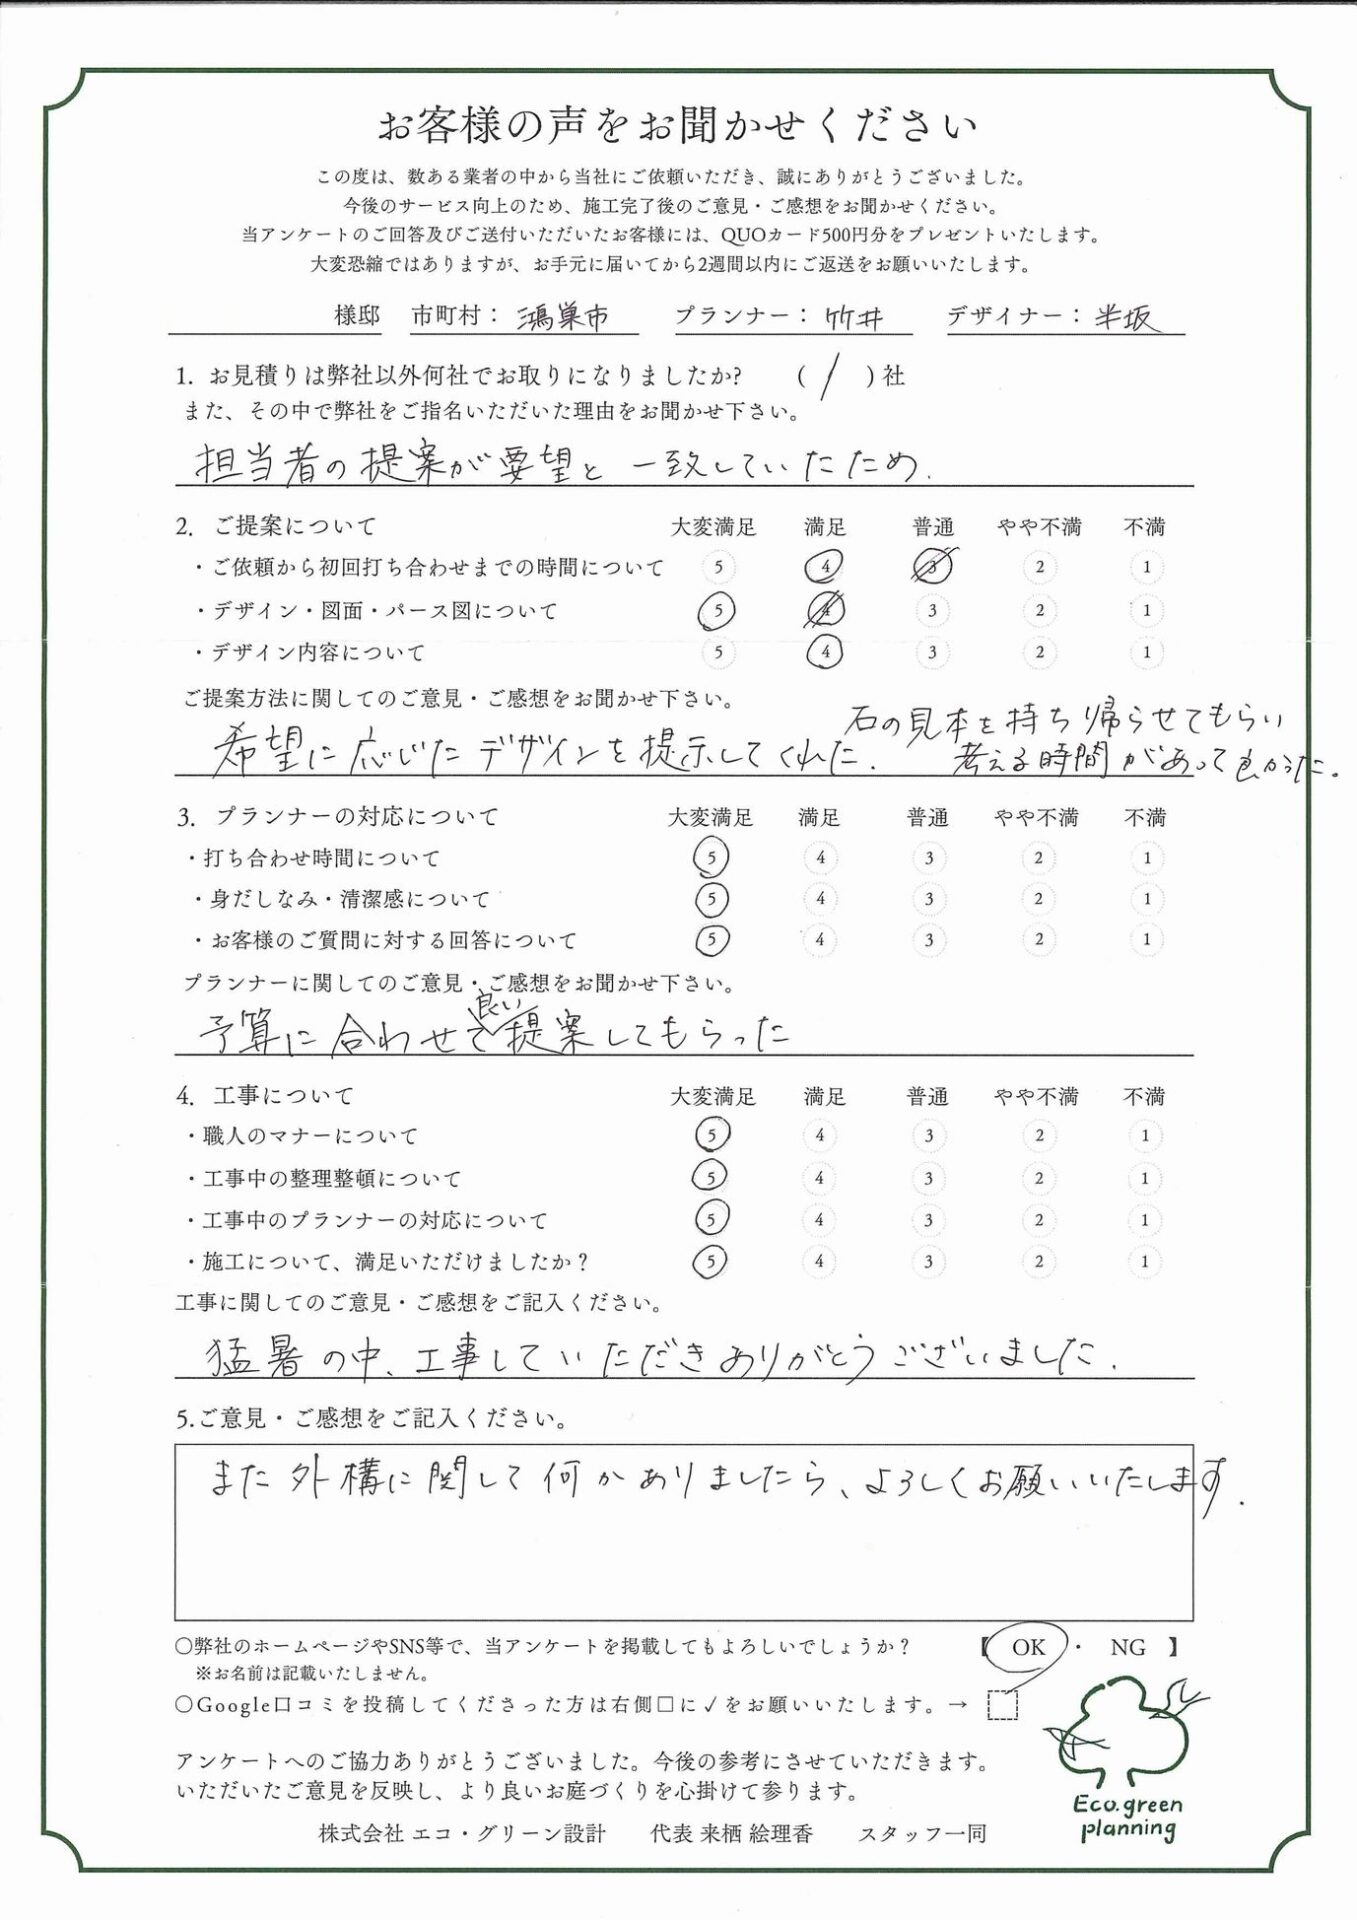 お客様の声をお聞かせください
この度は、数ある業者の中から当社にご依頼いただき、誠にありがとうございました。
今後のサービス向上のため、施工完了後のご意見・ご感想をお聞かせください。
当アンケートのご回答及びご送付いただいたお客様には、QUOカード500円分をプレゼントいたします。
大変恐縮ではありますが、お手元に届いてから2週間以内にご返送をお願いいたします。
様邸 市町村： 鴻巣市 プランナー： 竹井 デザイナー： 半坂
1. お見積りは弊社以外何社でお取りになりましたか? ( / )社
また、その中で弊社をご指名いただいた理由をお聞かせ下さい。
担当者の提案が要望と一致していたため.
2. ご提案について 大変満足 満足 普通 やや不満 不満
・ご依頼から初回打ち合わせまでの時間について 5 4 3 2 1
・デザイン・図面・パース図について 5 4 3 2 1
・デザイン内容について 5 4 3 2 1
ご提案方法に関してのご意見・ご感想をお聞かせ下さい。
希望に応じたデザインを提示してくれた.
石の見本を持ち帰らせてもらい
考える時間があって良かった。
3. プランナーの対応について 大変満足 満足 普通 やや不満 不満
・打ち合わせ時間について 5 4 3 2 1
・身だしなみ・清潔感について 5 4 3 2 1
・お客様のご質問に対する回答について 5 4 3 2 1
プランナーに関してのご意見・ご感想をお聞かせ下さい。
予算に合わせて良い提案してもらった
4. 工事について 大変満足 満足 普通 やや不満 不満
・職人のマナーについて 5 4 3 2 1
・工事中の整理整頓について 5 4 3 2 1
・工事中のプランナーの対応について 5 4 3 2 1
・施工について、満足いただけましたか？ 5 4 3 2 1
工事に関してのご意見・ご感想をご記入ください。
猛暑の中、工事していただきありがとうございました.
5.ご意見・ご感想をご記入ください。
また外構に関して何かありましたら、よろしくお願いいたします.
〇弊社のホームページやSNS等で、当アンケートを掲載してもよろしいでしょうか？ 【 OK ・ NG 】
※お名前は記載いたしません。
〇Google口コミを投稿してくださった方は右側□に✓をお願いいたします。→
アンケートへのご協力ありがとうございました。今後の参考にさせていただきます。
いただいたご意見を反映し、より良いお庭づくりを心掛けて参ります。
株式会社 エコ・グリーン設計 代表 来栖 絵理香 スタッフ一同
Eco.green
planning